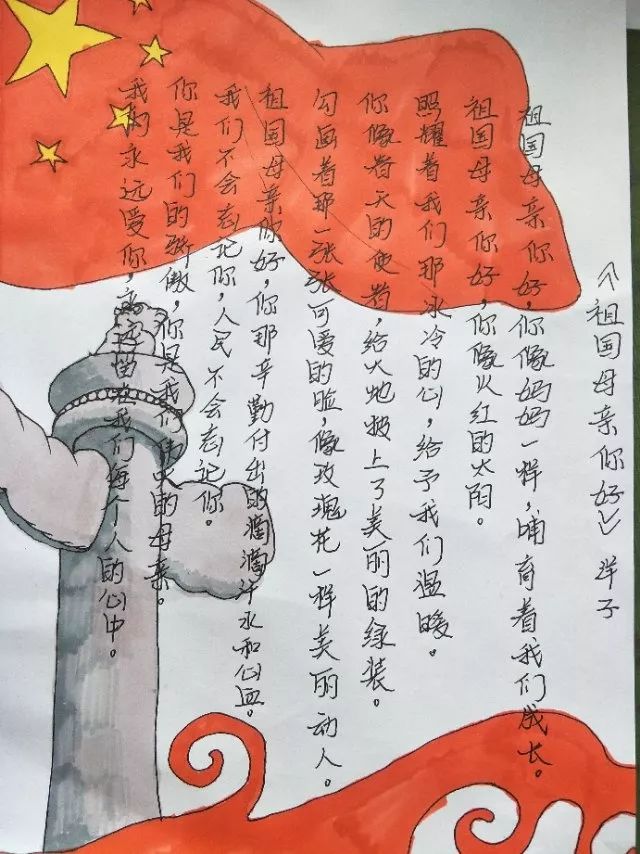 《祖国母亲你好》 洋子
祖国母亲你好，你像妈妈一样，哺育着我们成长。
祖国母亲你好，你像火红的太阳。
照耀着我们那冰冷的心，给予我们温暖。
你像春天的使者，给大地披上了美丽的绿装。
勾画着那一张张可爱的脸，像玫瑰花一样美丽动人。
祖国母亲你好，你那辛勤付出的滴滴汗水和心血。
我们不会忘记你，人民不会忘记你。
你是我们的骄傲，你是我们伟大的母亲。
我们永远爱你，永远留在我们每个人的心中。